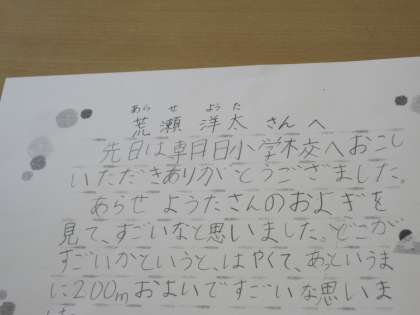 あらせ ようた
荒瀬 洋太 さんへ
先日は 小学校へおこし
いただきありがとうございました。
あらせ ようたさんのおよぎを
見て、すごいなと思いました。どこが
すごいかというと、はやくて、あっというま
に200mおよいですごいな思いま
した